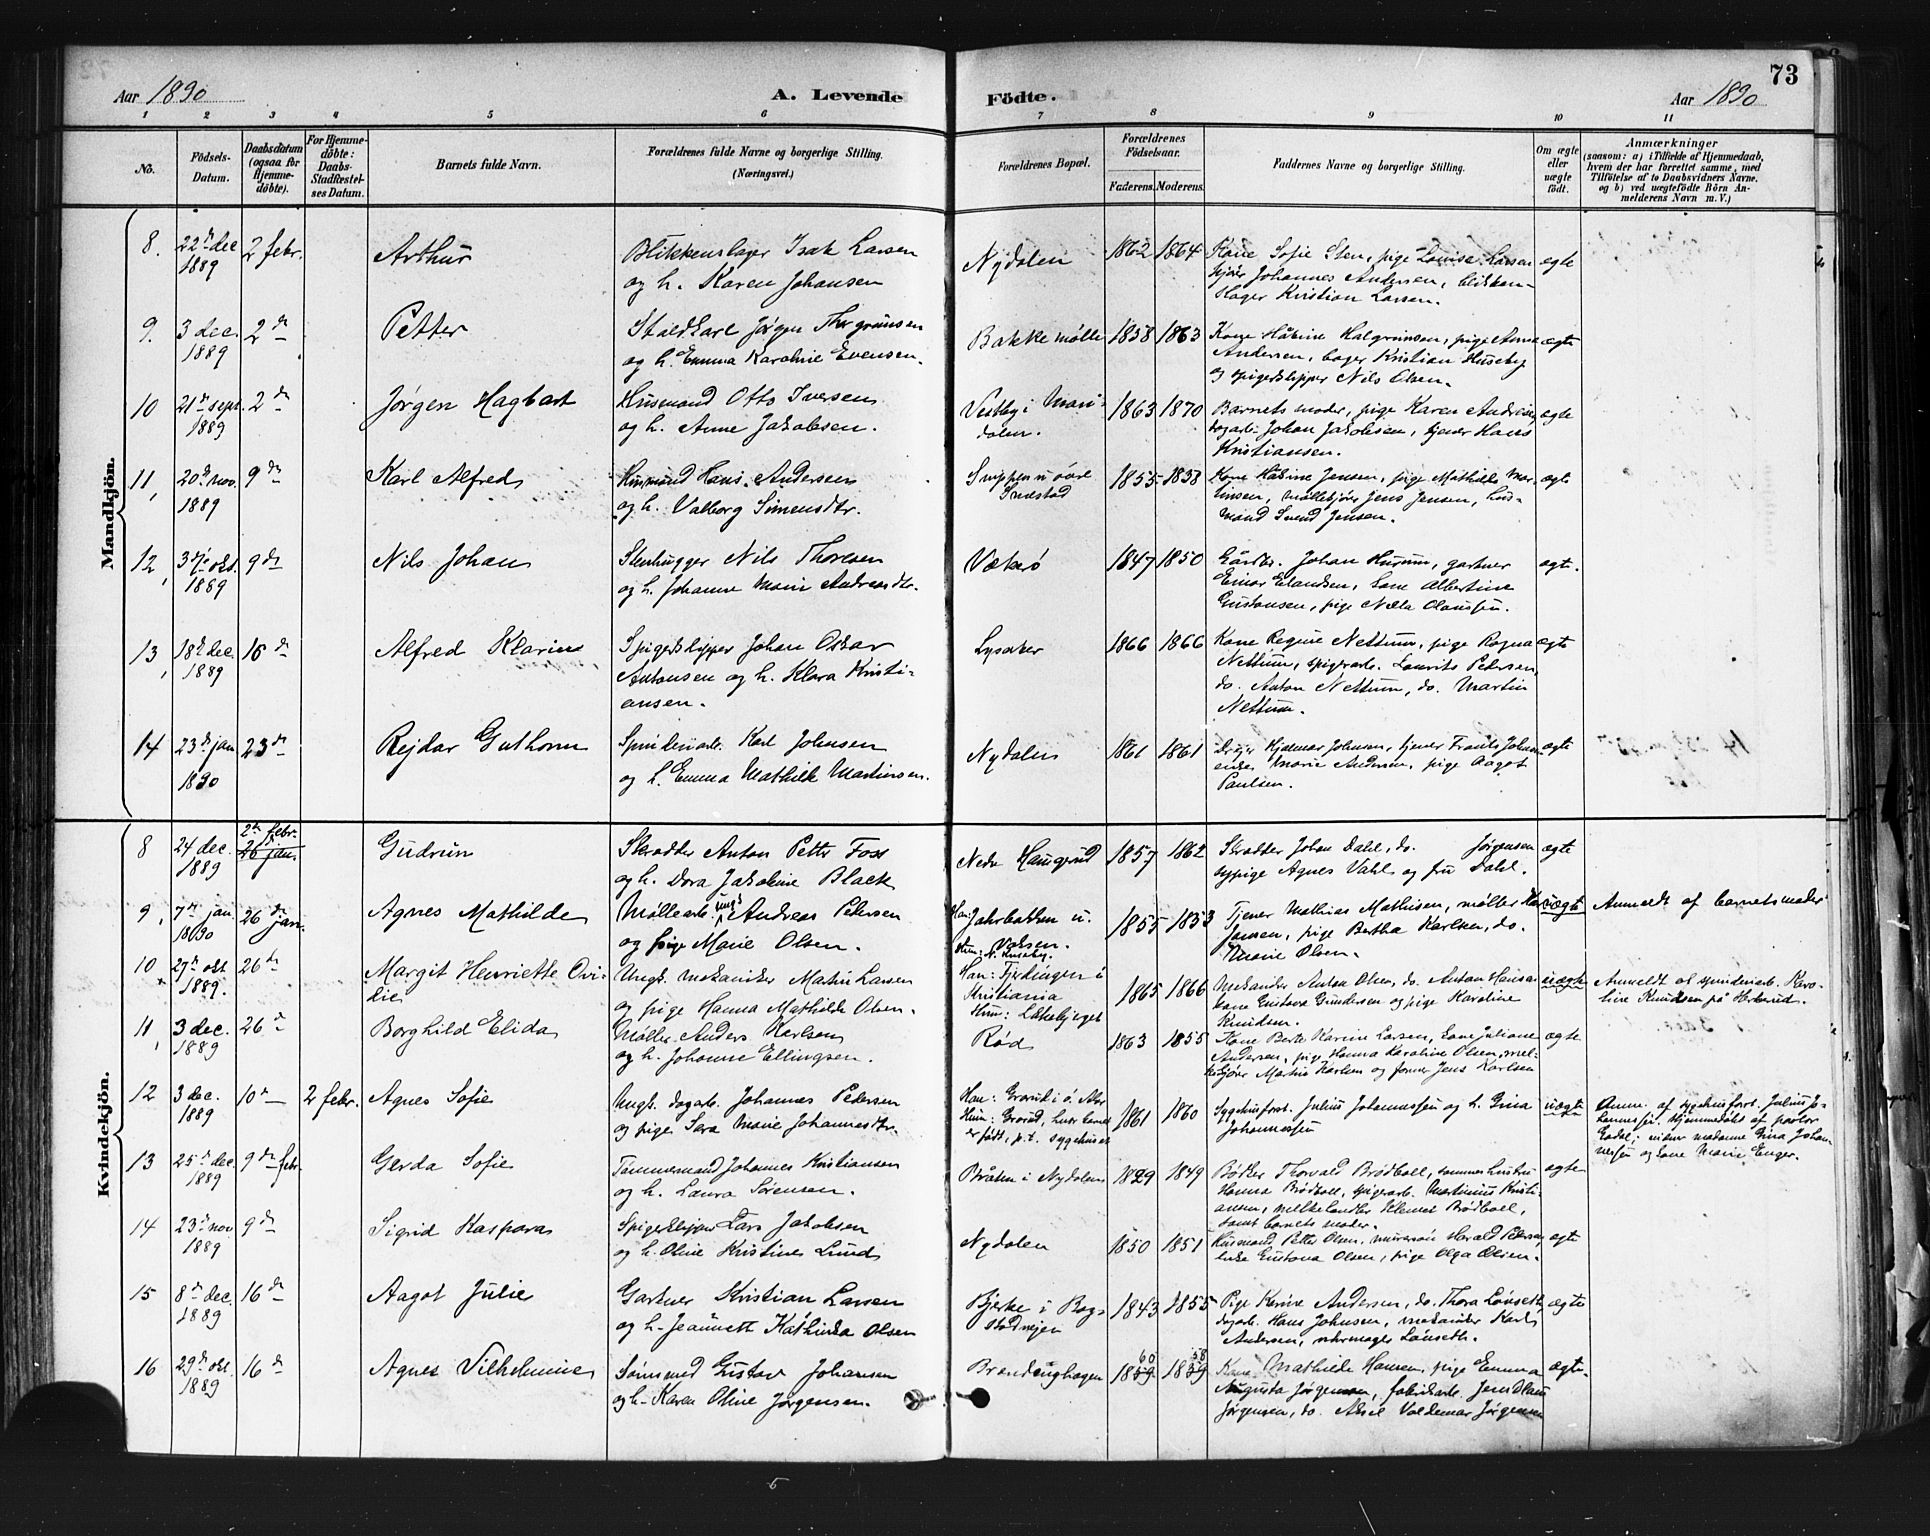 73
Aar 1890 A. Levende Födte. Aar 1890
1 2 3 4 5 6 7 8 9 10 11
No.
Födsels-Datum.
Daabsdatum (ogsaa for Hjemme-döbte).
For Hjemme-döbte: Daabs Stadfæstel-ses Datum.
Barnets fulde Navn.
Forældrenes fulde Navne og borgerlige Stilling. (Næringsvei.)
Forældrenes Bopæl.
Forældrenes Födselsaar.
Faderens. Moderens.
Faddernes Navne og borgerlige Stilling.
Om ægte eller uægte födt.
Anmærkninger
(saasom: a) i Tilfælde af Hjemmedaab, hvem der har forrettet samme, med Tilföielse af to Daabsvidners Navne. og b) ved uægtefödte Börn An-melderens Navn m. V.)
Mandkjön.
8. 22de dec 1889 2 febr. Arthur
Blikkenslager Isak Larsen
og h. Karen Johansen
Nydalen 1862 1864
Kone Sofie Sten, pige Lovise Larsen
Johannes Andersen, blikken-
slager Kristian Larsen.
ægte
9. 3 dec. 1889 2 de Petter
Staldkarl Jörgen Thorgrimsen
og h. Emma Karoline Evensen.
Bakke mölle 1858 1863
Kone Halgrimsen, pige Anna
Andersen, bager Kristian Huseby
og spigerslipper Nils Olsen.
ægte
10 21de sept. 1889 2 de Jörgen Hagbart
Husmand Otto Iversen
og h. Anne Jakobsen.
Vestby i Mari-
dalen. 1863 1870
Barnets moder, pige Karen
dagarb. Johan Jakobsen, tjener Hans
Kristiansen.
ægte
11, 20de nov. 1889 9 de Karl Alfred
Husmand Hans Andersen
og h. Valborg Simensdtr.
1855 1858
Kone Jensen, pige Mathilde Mar-
tinsen, Jens Jensen,
mand Svend Jensen.
ægte
12, okt. 1889 9 de Nils Johan
Stenhugger Nils Thoresen
og h. Johanne Marie Andreasdtr.
Vækerö 1847 1850
Johan Hurum, gartner
Einar Elandsen, Albertine
Gustavsen, pige
ægte.
13, 18de dec. 1889 16 de Alfred Klarius
Spigerslipper Johan Oskar
Antonsen og h. Klara Kristi-
ansen.
Lysaker 1866 1866
Kone Regine Nettum, pige Ragna
Nettum, spigerarb. Laurits Pedersen,
do. Anton Nettum, do. Martin
Nettum.
ægte
14 23de jan 1890 23 de Rejdar Guthorm
Spinderiarb. Karl Johnsen
og h. Emma Mathilde Martinsen.
Nydalen 1861 1861
Hjalmar Johnsen, tjener Frants Johan
enke Marie Andersen, pige Aagot
Paulsen.
ægte
Kvindekjön.
8 24 dec. 1889 2de febr. 26 jan. Gudrun
Skrædder Anton Petter Foss
og h. Dora Jakobine Black
Nedre Haugerud 1857 1862
Skrædder Johan Dahl, do. Jörgensen
sypige Agnes Vahl og fru Dahl.
ægte
9, 7de jan. 1890 26 de jan. Agnes Mathilde
Möllearb. ungk. Andreas Petersen
og pige Marie Olsen.
1855 1853
Tjener Mathias Mathisen, möller
Jansen, pige Bertha Karlsen, do.
Marie Olsen.
uægte Anmeldt af barnets moder
10 27de okt 1889. 26 de Margit Henriette Ovi-
die
Ungk. mekaniker Martin Larsen
og pige Hanna Mathilde Olsen.
Han: Tjerdingen i
Kristiania
Hun: Lakkebjerget
1865 1866
Mekaniker Anton Olsen, do. Anton Hansen
kone Gustava Gundersen og pige Karoline
Knudsen.
uægte Anmeldt af spinderiarb. Karo-
line Knudsen på
11, 3 dec. 1889 26 de Borghild Elida
Möller Anders Karlsen
og h. Johanne Ellingsen.
Röd 1863 1855
Kone Berte Karine Larsen, kone Juliane
Andersen, pige Hanna Karoline Olsen,
Martin Karlsen og Jens Karlsen
ægte
12 3 dec. 1889 10de 2 febr. Agnes Sofie
Ungk. dagarb. Johannes Pedersen
og pige Sara Marie Johannesdtr.
Han: Grorud i ö. Aker
Hun: Grorud, hvor barnet
er födt, p.t. sygehuset
1861 1860
Sygehusforst. Julius Johannessen og h. Gina
Johannessen
uægte Anm. af sygehusforst. Julius Jo-
hannessen. Hjemmedöbt af pastor
madame Gina Johan-
nessen og kone Marie Enger.
13 25de dec. 1889 9 de febr. Gerda Sofie
Tömmermand Johannes Kristiansen
og h. Laura Sörensen.
Bråten i Nydalen 1829 1849
Bödker Thorvald Brödboll, sammes hustru
Hanna Brödboll, spigerarb. Martinius Kristi-
ansen, melkehandler Klemet Brödboll,
samt barnets moder.
ægte
14 23de nov 1889 9 de Sigrid Kaspara
Spigerslipper Lars Jakobsen
og h. Oline Kristine Lund
Nydalen 1850 1851
Husmand Petter Olsen, murersvend Harald Petersen
enke Gustava Olsen, pige Olga Olsen.
ægte
15 8de dec. 1889 16 de Aagot Julie
Gartner Kristian Larsen
og h. Jeannett Kathinka Olsen
Bjerke i Bog-
stadvejen 1843 1855
Pige Karine Andersen, do. Thora Lönseth,
dagarb. Hans Johnsen, mekaniker Karl
Andersen, urmager Lönseth.
ægte
16 29de okt 1889 16 de Agnes Vilhelmine
Gustav Johansen
og h. Karen Oline Jörgensen.
Brændenghagen 60 1859 58 1859
Kone Mathilde Hansen, pige Emma
Augusta Jörgensen, fabrikarb. Jens
Jörgensen, do. Aksel Valdemar Jörgensen
ægte.